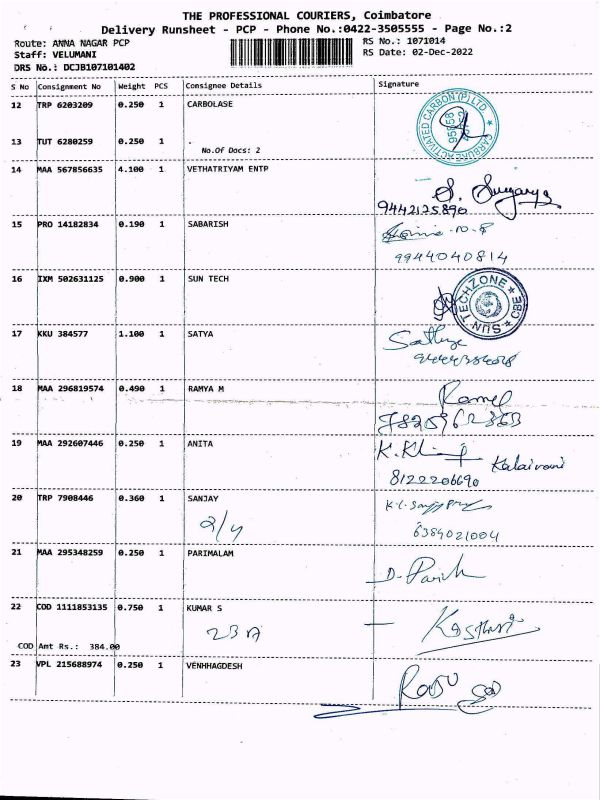 THE PROFESSIONAL COURIERS, Coimbatore
Delivery Runsheet - PCP - Phone No.:0422-3505555 - Page No.:2
Route: ANNA NAGAR PCP RS No.: 1071014
Staff: VELUMANI RS Date: 02-Dec-2022
DRS No.: DCJB107101402
S No Consignment No Weight PCS Consignee Details Signature
12 TRP 6203209 0.250 1 CARBOLASE
CARBURE ACTIVATED CARBON (P) LTD
13 TUT 6280259 0.250 1 .
No.Of Docs: 2
14 MAA 567856635 4.100 1 VETHATRIYAM ENTP
9442175890
15 PRO 14182834 0.190 1 SABARISH
9944040814
16 IXM 502631125 0.900 1 SUN TECH
SUN TECHZONE CBE
17 KKU 384577 1.100 1 SATYA
Sathya
18 MAA 296819574 0.490 1 RAMYA M
19 MAA 292607446 0.250 1 ANITA
Kalaivani
8122206690
20 TRP 7908446 0.360 1 SANJAY
2/4
6384021004
21 MAA 295348259 0.250 1 PARIMALAM
22 COD 1111853135 0.750 1 KUMAR S
23A Kasthuri
COD Amt Rs.: 384.00
23 VPL 215688974 0.250 1 VENHHAGDESH